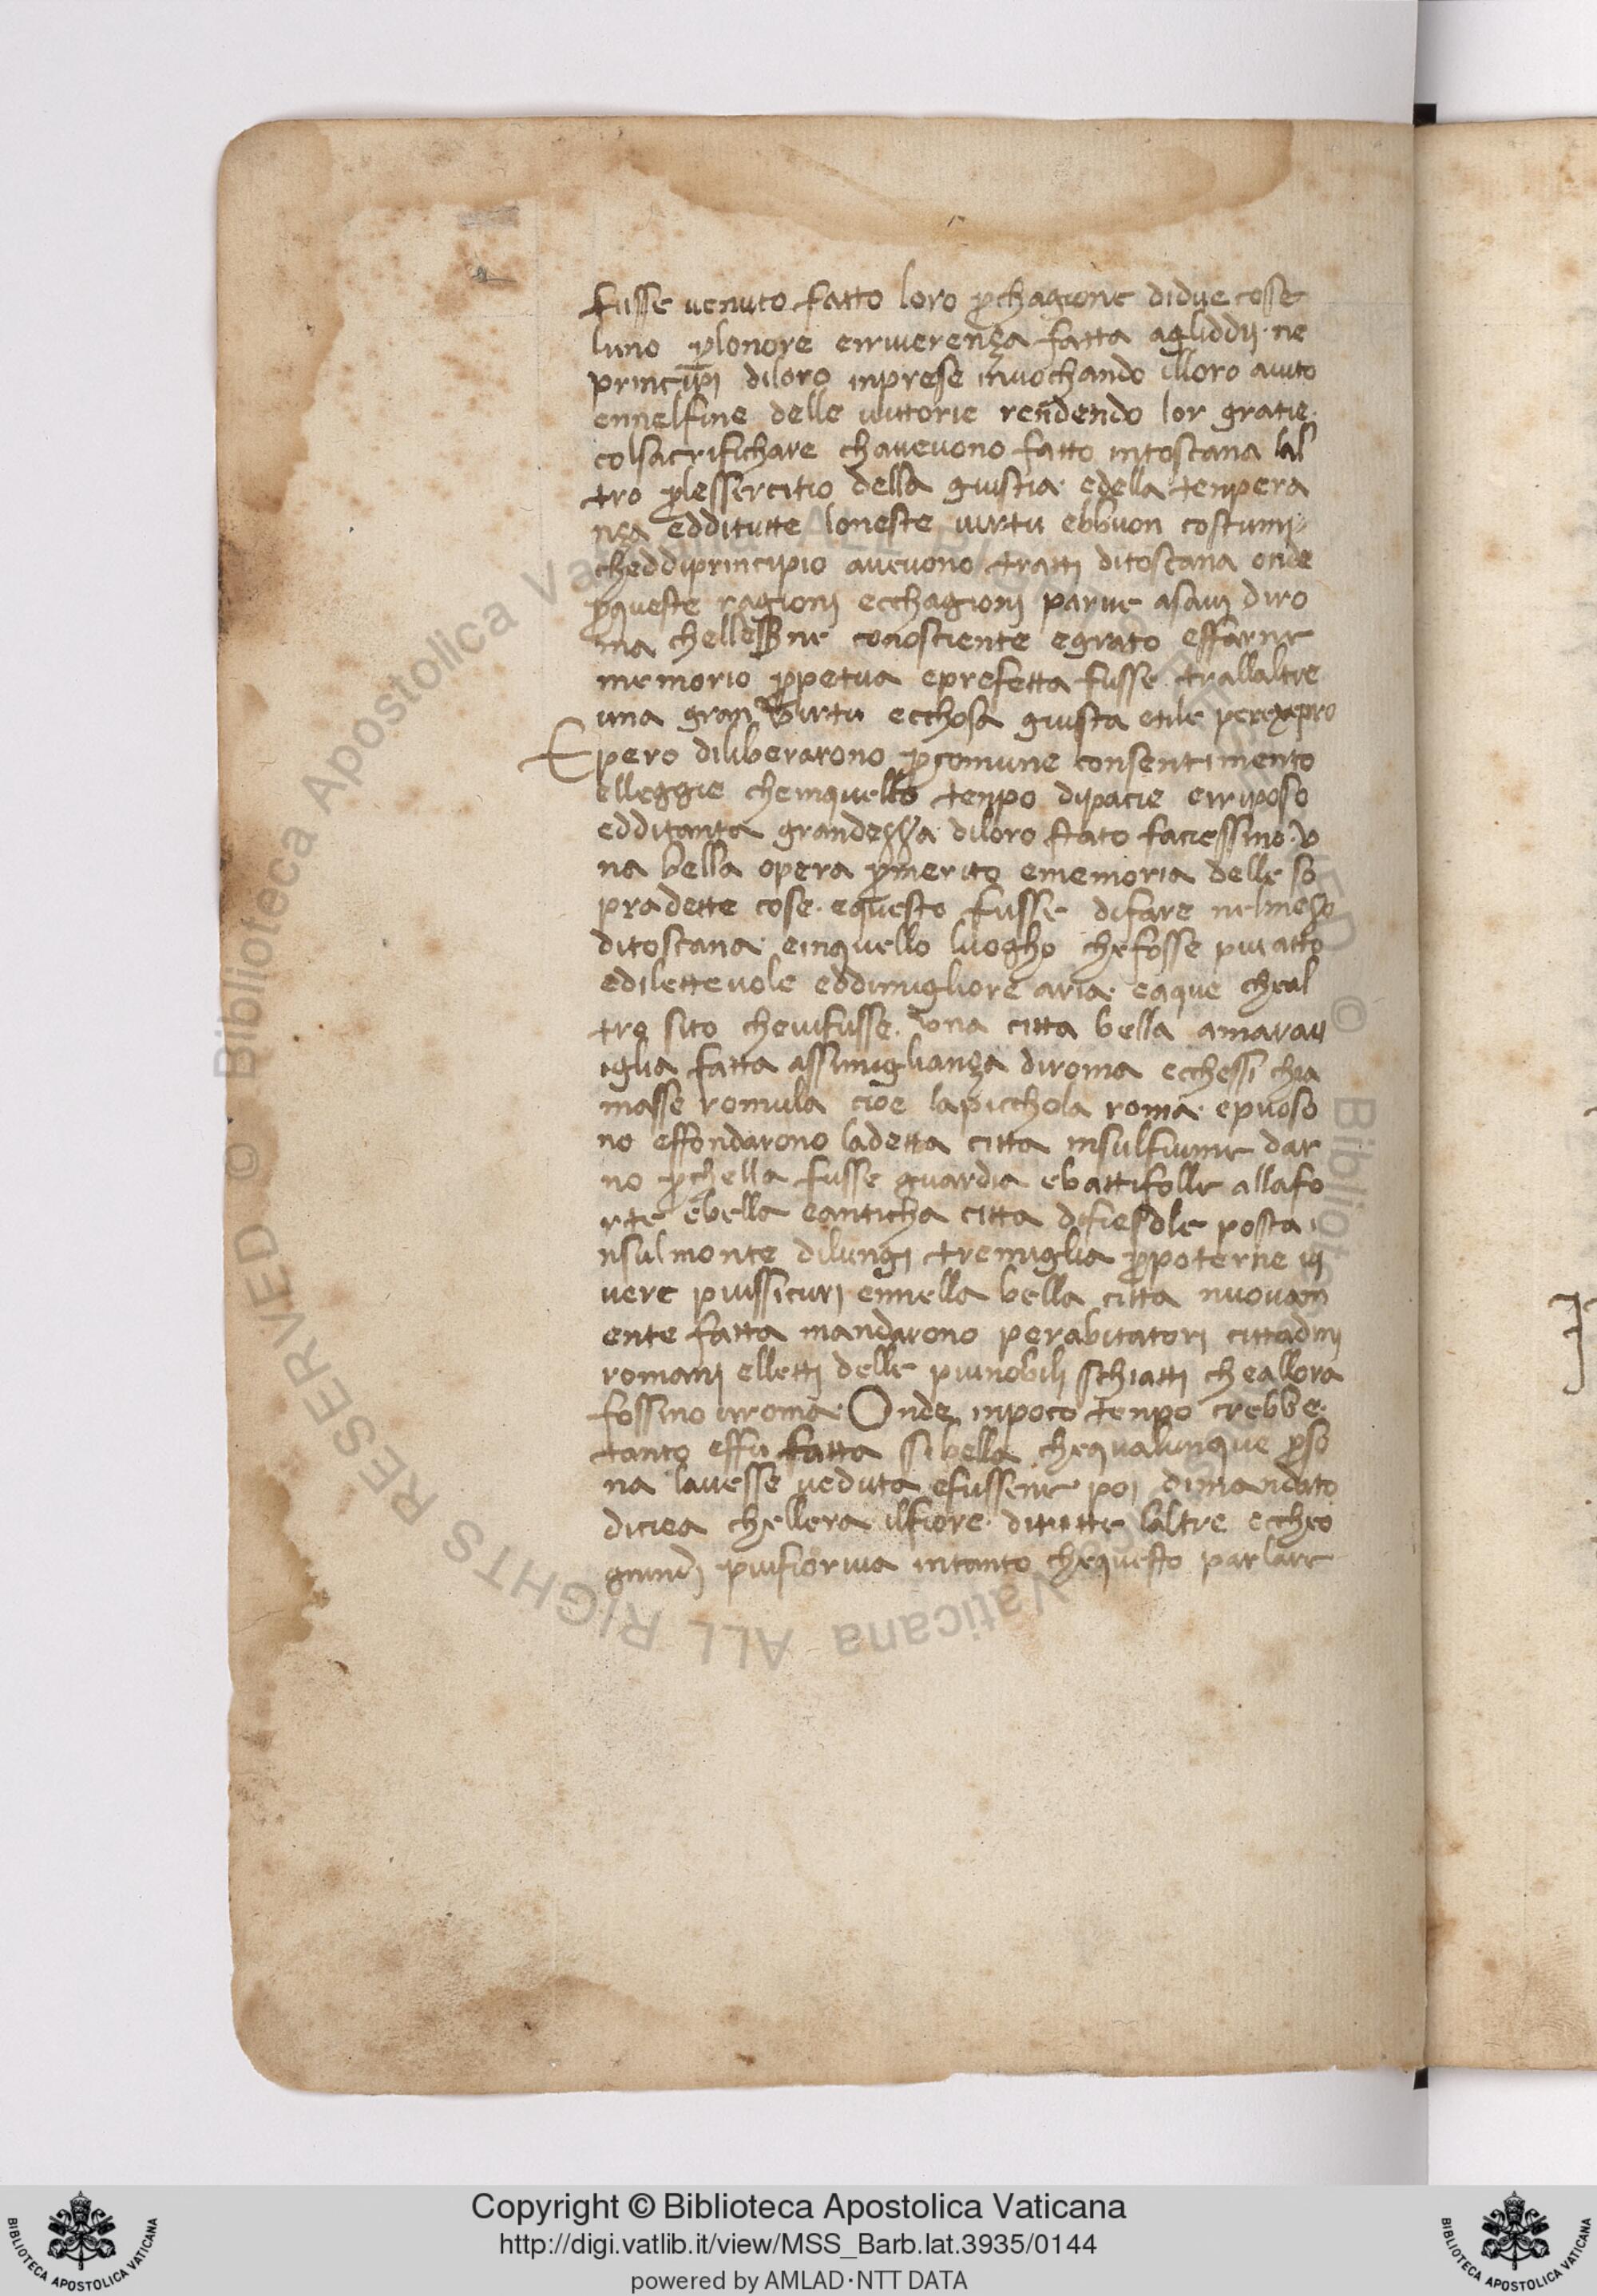 fusse venuto fatto loro ꝑchagione didue cose
luno ꝑlonore erriverença fatta agliddij · ne
principi diloro inprese invochando illoro aiuto
ennelfine delle vittorie rendendo lor gratie ·
colsacrifichare chavevono fatto intoscana lal
tro ꝑlessercitio della giustia · edella tenpera
nça edditutte loneste virtu ebbuon costumi
cheddiprincipio avevono tratti ditoscana onde
ꝑqueste ragioni ecchagioni parve asavi diro
ma chellessr ne conosciente egrato effarne
memorio ꝑpetua eprefetta fusse trallaltre
una gran virtu ecchosa giusta etile
Epero diliberarono ꝑcomune consentimento
elleggie cheinquello tenpo dipacie erriposo
edditanta grandeçça diloro stato faciessino · v
na bella opera ꝑmerito ememoria delle so
pradette cose · equesto fusse difare nelmeço
ditoscana · einquello luogho chefosse piu atto
edilettevole eddimigliore aria · eaque cheal
tro sito chevifusse · vna citta bella amarav
iglia fatta assimigliança diroma ecchessi chia
masse romula cioe lapicchola roma · epuoso
no effondarono ladetta citta insulfiume dar
no ꝑchella fusse guardia ebattifolle allafo
rte ebella eanticha citta difiesole posta i
nsulmonte dilungi tremiglia ꝑpoterne vi
vere piussicuri ennella bella citta nuovam
ente fatta mandarono perabitatori cittadini
romani elletti delle piunobili schiatti cheallora
fossino irroma · Onde inpoco tenpo crebbe ·
tanto effu fatta sibella chequalunque ꝑso
na lavesse veduta efussene poi dimandato
diciea chellera ilfiore · ditutte laltre eccheo
gnindi piufioriva intanto chequesto parlare
Copyright © Biblioteca Apostolica Vaticana
http://digi.vatlib.it/view/MSS_Barb.lat.3935/0144
powered by AMLAD·NTT DATA